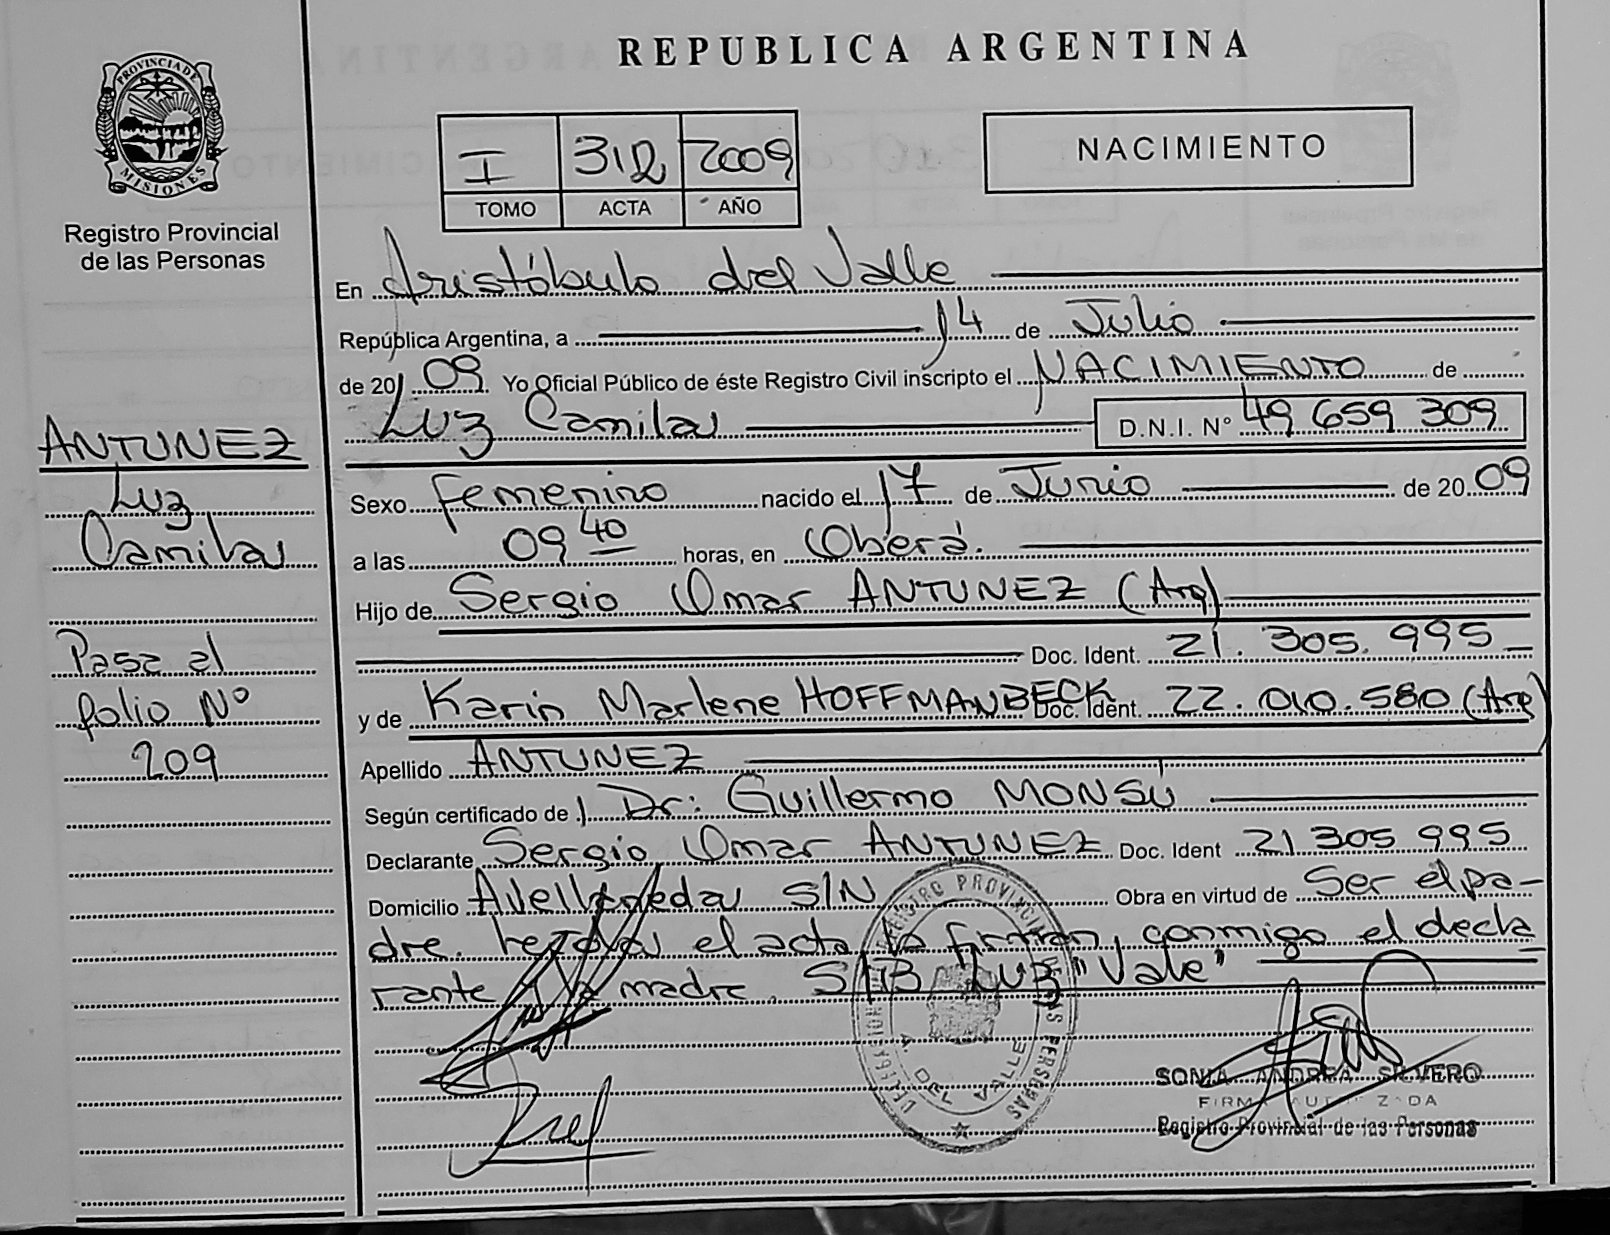 REPUBLICA ARGENTINA
PROVINCIA DE MISIONES
Registro Provincial
de las Personas
I 312 2009
TOMO ACTA AÑO
NACIMIENTO
En Aristóbulo del Valle
República Argentina, a 14 de Julio
de 20 09 Yo Oficial Público de éste Registro Civil inscripto el NACIMIENTO de
Luz Camila D.N.I. Nº 49 659 309
Sexo femenino nacido el 17 de Junio de 20 09
a las 09 40 horas, en Oberá.
Hijo de Sergio Omar ANTUNEZ (Arg)
Doc. Ident. 21.305.995
y de Karin Marlene HOFFMANBECK Doc. Ident. 22.010.580 (Arg)
Apellido ANTUNEZ
Según certificado de Dr: Guillermo MONSÚ
Declarante Sergio Omar ANTUNEZ Doc. Ident 21 305 995
Domicilio Avellaneda S/N Obra en virtud de Ser el pa-
dre. el acta la firman, conmigo el decla
rante y la madre. S/B "Luz" Vale"
ANTUNEZ
Luz
Camila
Pasa al
folio Nº
209
DELEGACION REGISTRO PROVINCIAL DE LAS PERSONAS
A. DEL VALLE
SONIA ANDREA SILVERO
FIRMA AUTORIZADA
Registro Provincial de las Personas